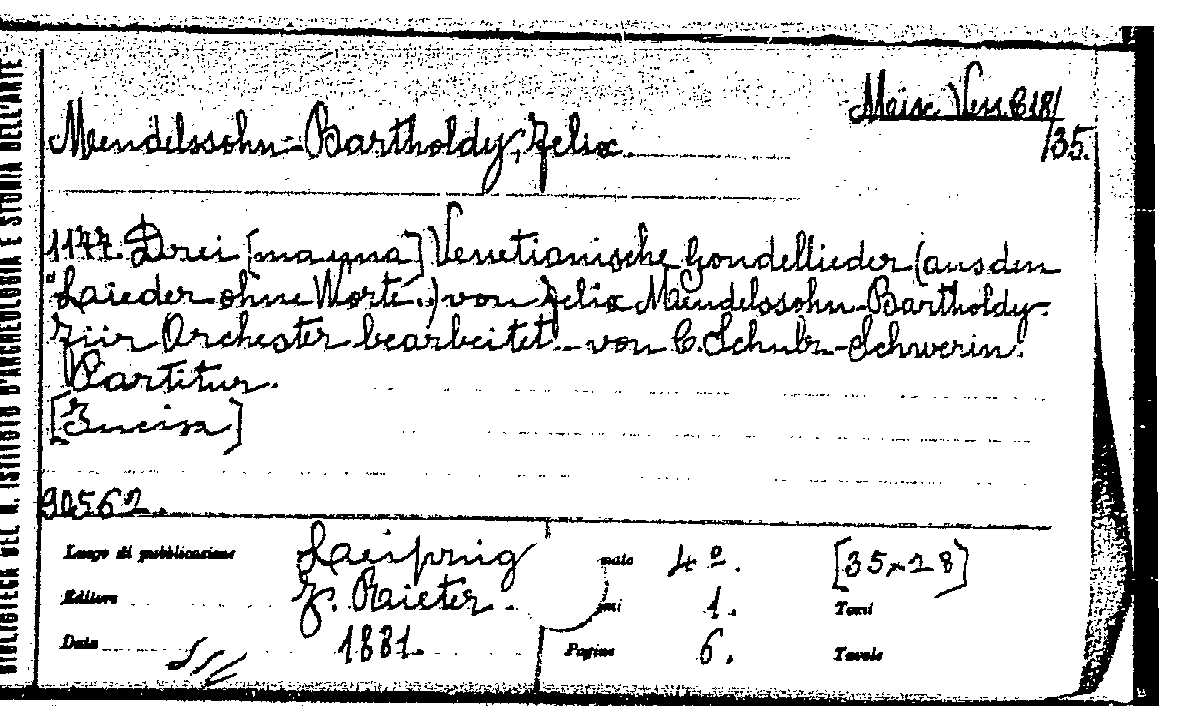 BIBLIOTECA DEL R. ISTITUTO D'ARCHEOLOGIA E STORIA DELL'ARTE
Misc. Ven. C 18/
/35.
Mendelssohn-Bartholdy, Felix
1177. Drei Venetianische Gondellieder (aus den
"Laieder ohne Worte..) von Felix Mendelssohn-Bartholdy
Für Orchester bearbeitet von C. Schulz-Schwerin.
Partitur.
[Incisa]
90562.
Luogo di pubblicazione Laeipzig mato 4º. [35×28]
Editore J. Raieter. mi 1. Tomi
Data 1881. Pagine 6. Tavole